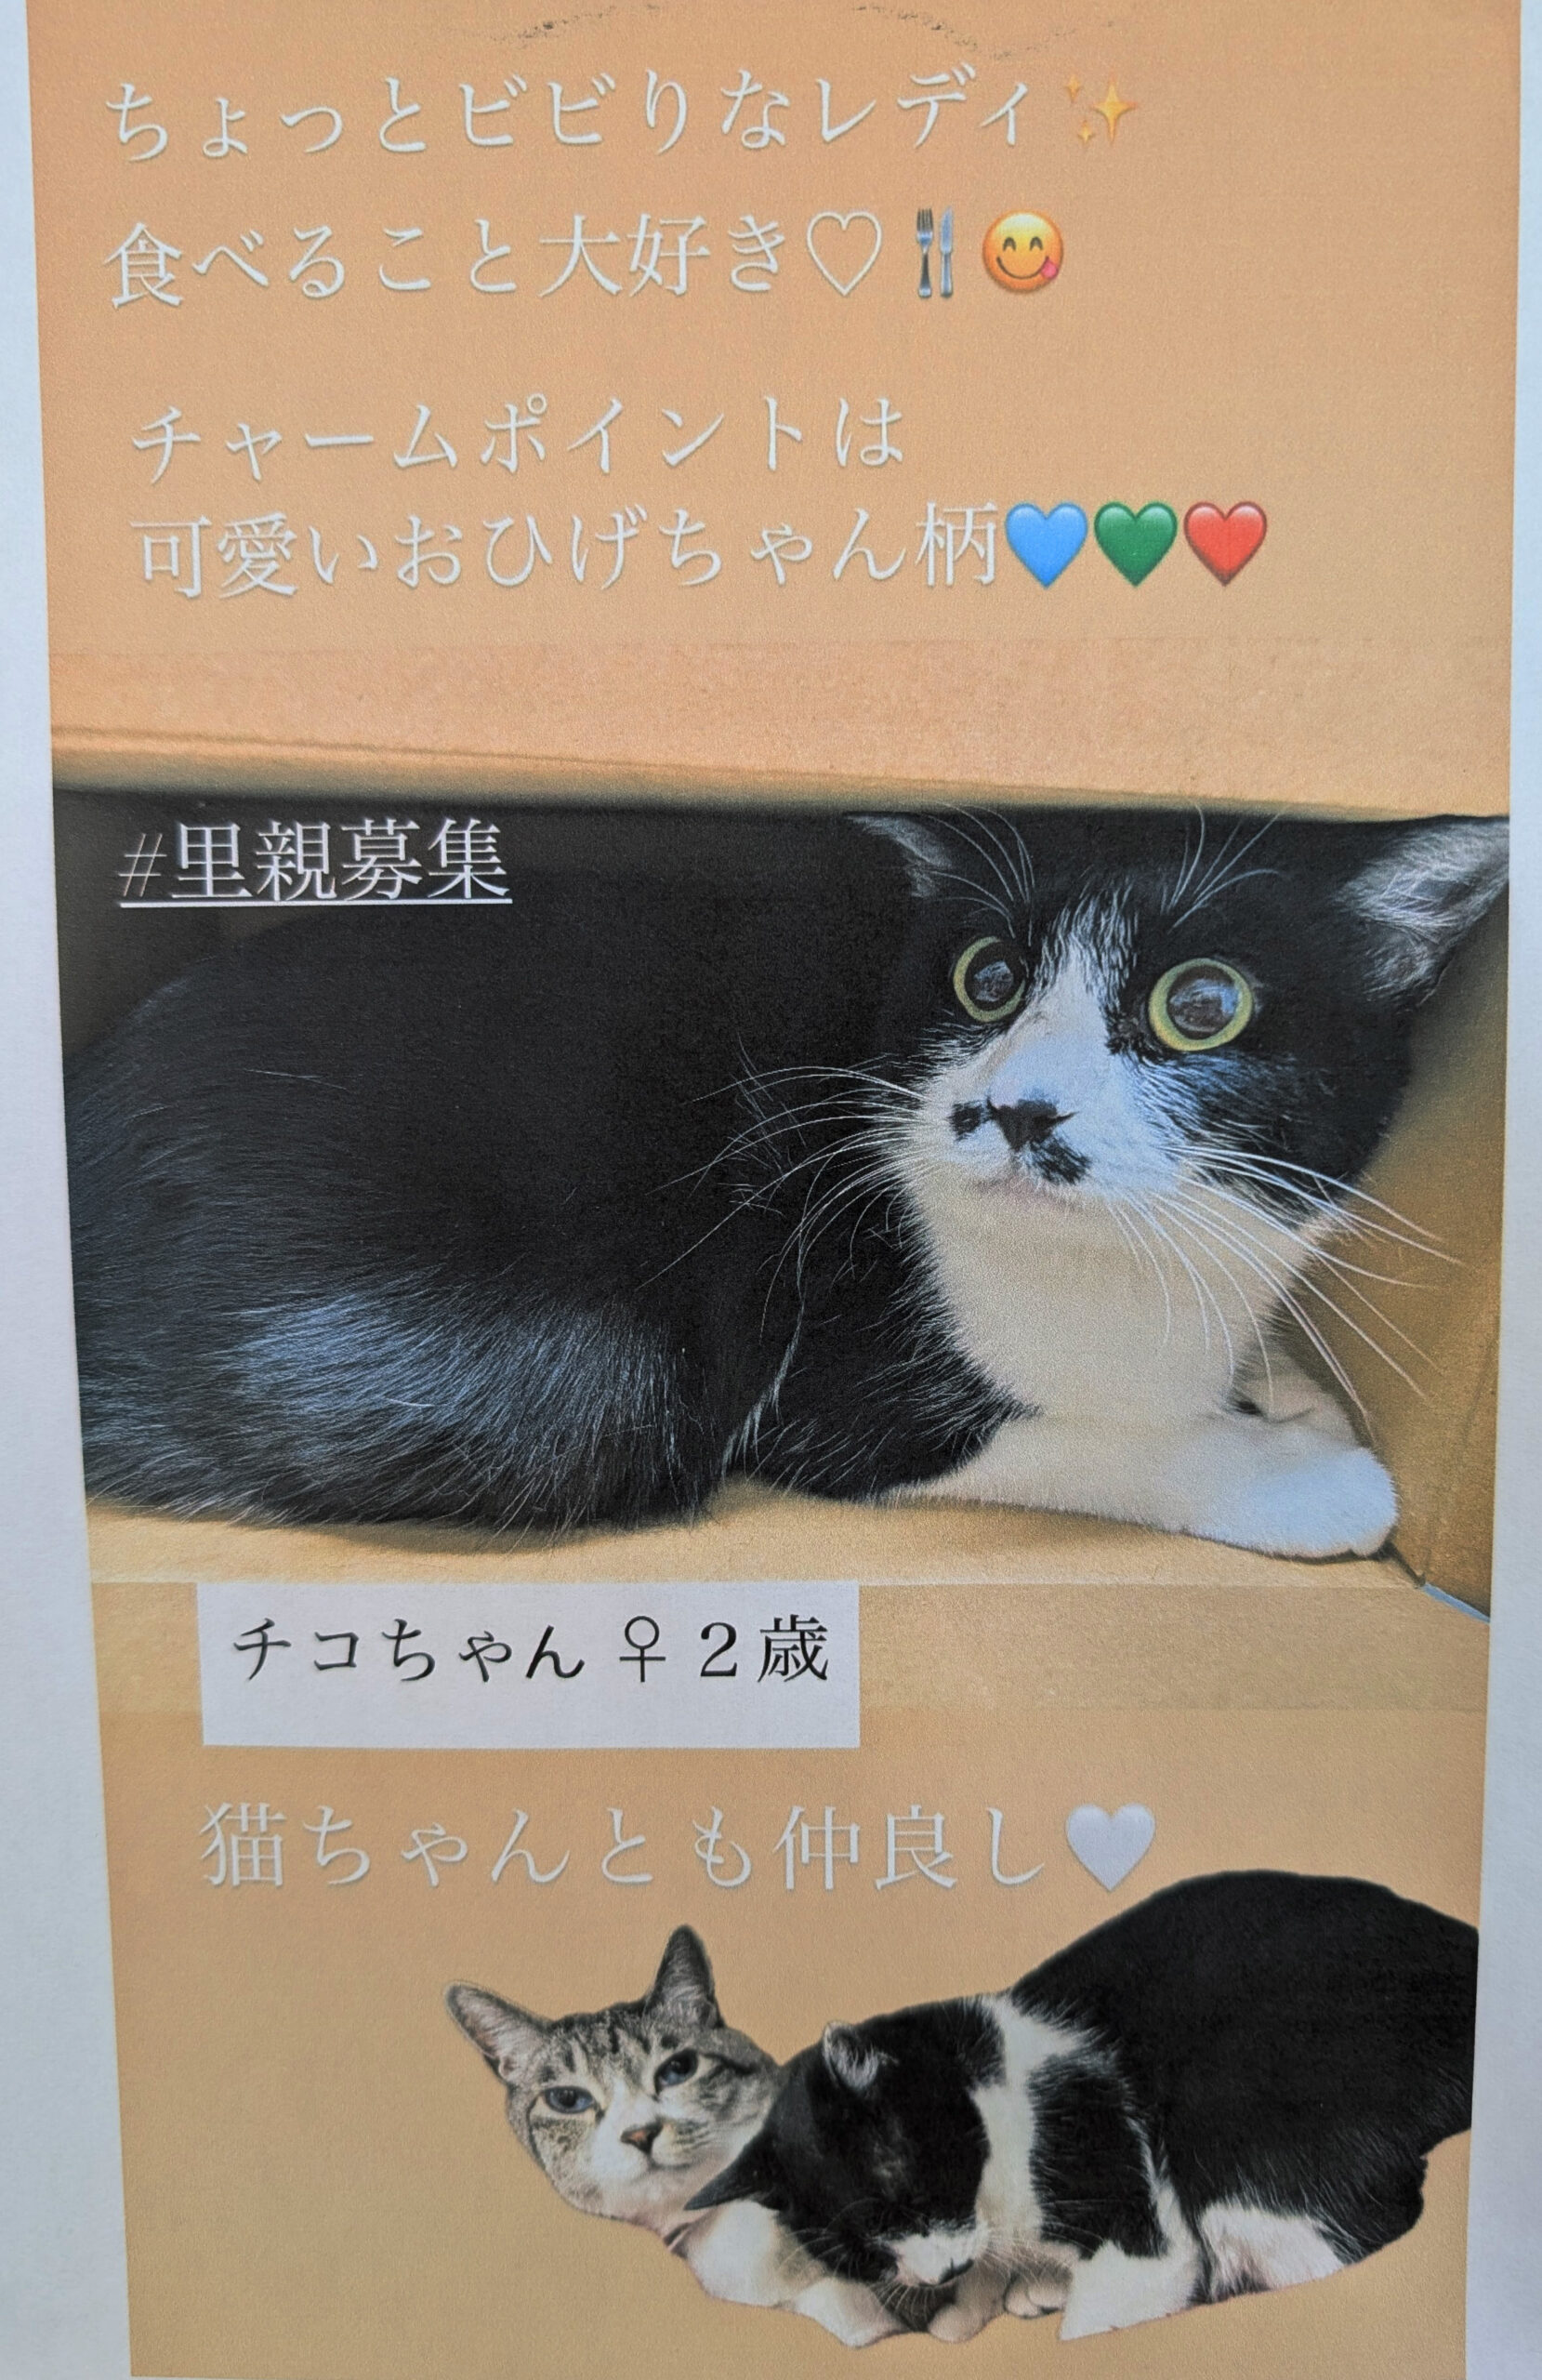 ちょっとビビりなレディ✨
食べること大好き♡🍴😋
チャームポイントは
可愛いおひげちゃん柄💙💚❤️
#里親募集
チコちゃん♀２歳
猫ちゃんとも仲良し🤍